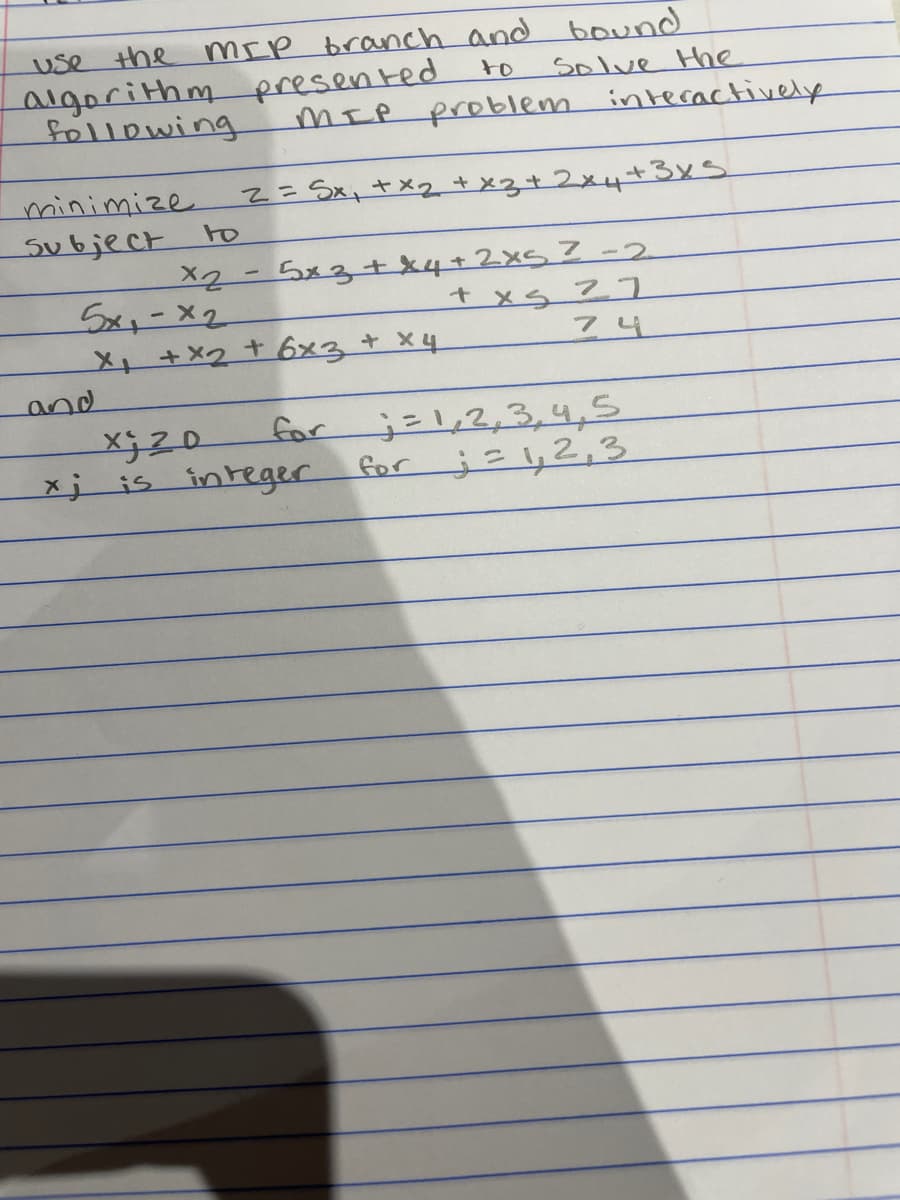 use the MIP branch and bound
algorithm presented to solve the
following MIP problem interactively
minimize z = 5x₁ + x₂ + x₃ + 2x₄ + 3x5
subject to
x₂ - 5x₃ + x₄ + 2x5 ≥ -2
5x₁ - x₂ + x5 ≥ 7
x₁ + x₂ + 6x₃ + x₄ ≥ 4
and
xj ≥ 0 for j = 1, 2, 3, 4, 5
xj is integer for j = 1, 2, 3